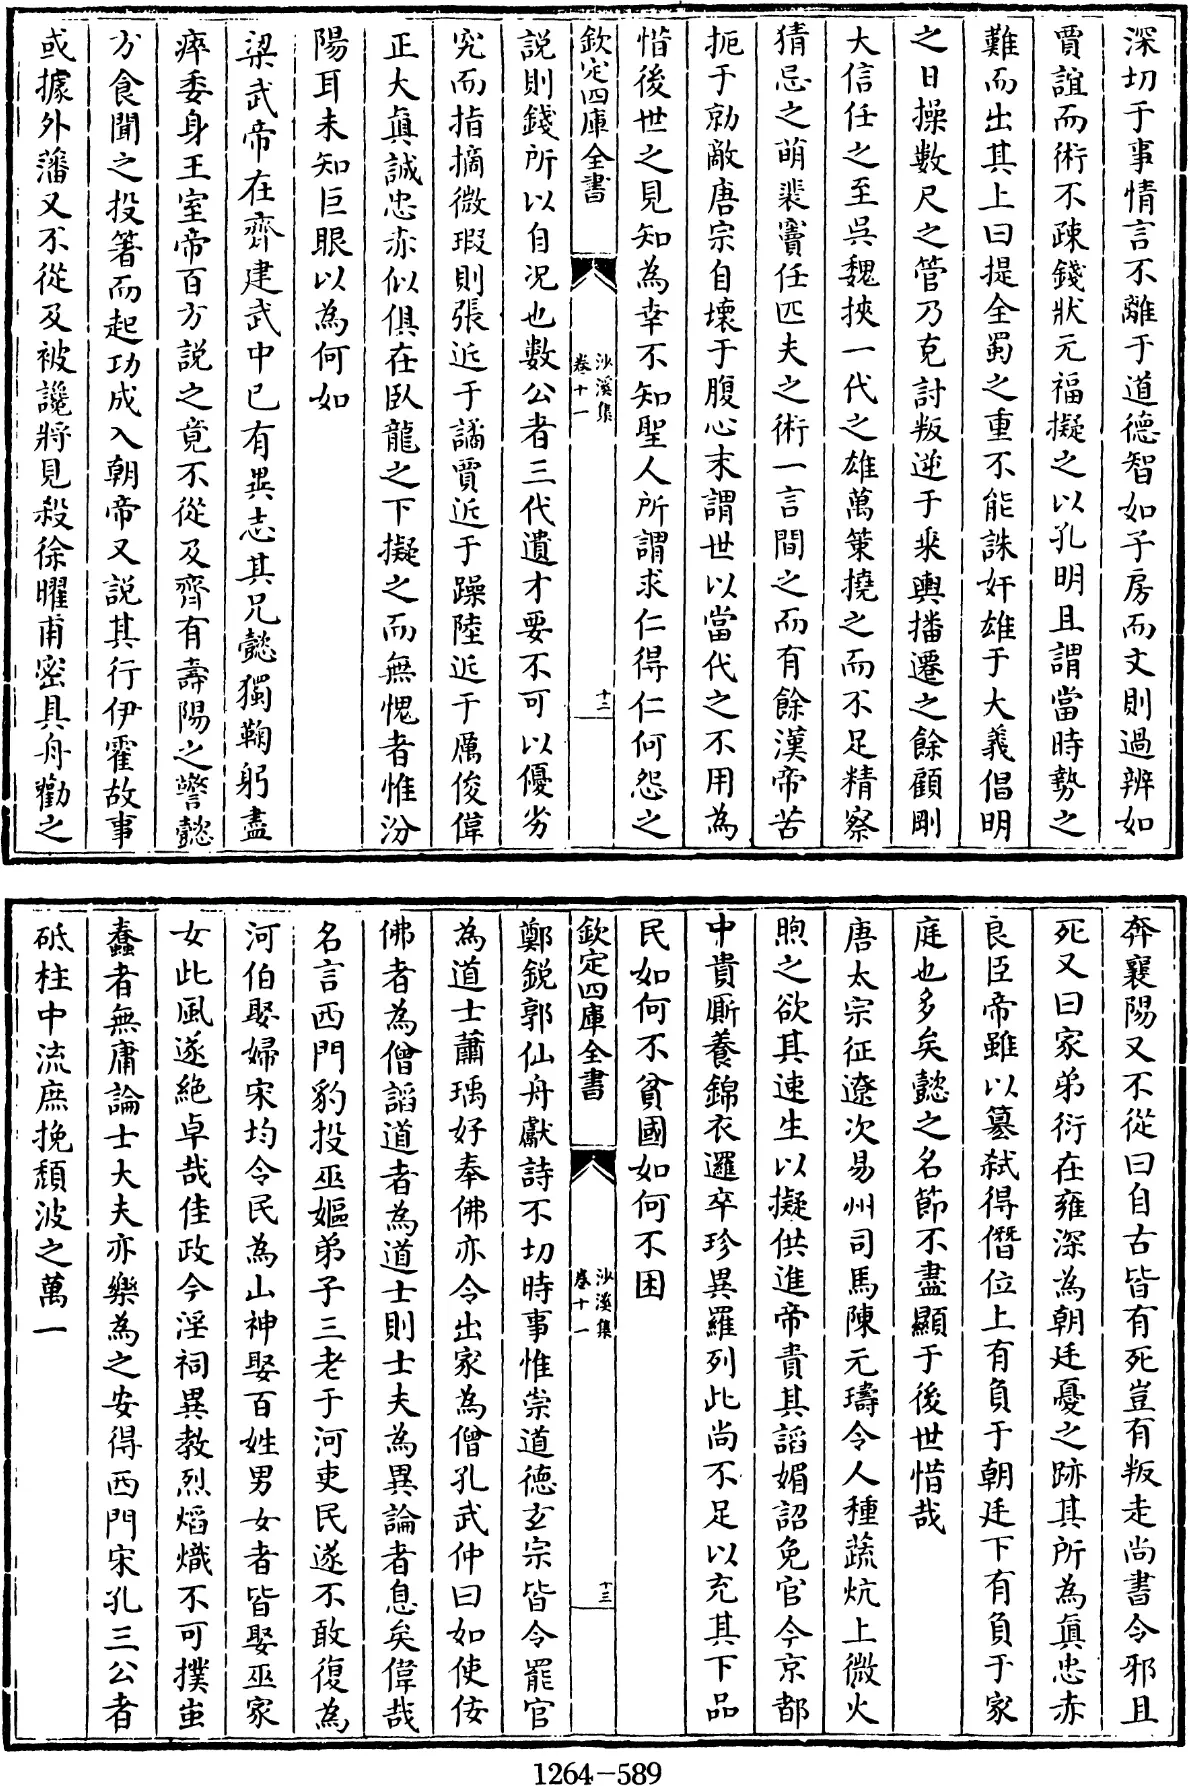 深切于事情言不離于道德智如子房而文則過辨如
賈誼而術不疎錢狀元福擬之以孔明且謂當時勢之
難而出其上曰提全蜀之重不能誅奸雄于大義倡明
之日操數尺之管乃克討叛逆于乘輿播遷之餘顧剛
大信任之至吳魏挾一代之雄萬䇿撓之而不足精察
猜忌之萌裴竇任匹夫之術一言間之而有餘漢帝苦
扼于勍敵唐宗自壞于腹心末謂世以當代之不用為
惜後世之見知為幸不知聖人所謂求仁得仁何怨之
欽定四庫全書
沙溪集
卷十一
十二
說則錢所以自况也數公者三代遺才要不可以優劣
究而指摘微瑕則張近于譎賈近于躁陸近于厲俊偉
正大真誠忠赤似俱在臥龍之下擬之而無愧者惟汾
陽耳未知巨眼以為何如
梁武帝在齊建武中已有異志其兄懿獨鞠躬盡
瘁委身王室帝百方說之竟不從及齊有壽陽之警懿
方食聞之投箸而起功成入朝帝又說其行伊霍故事
或據外藩又不從及被讒將見殺徐曜甫密具舟勸之
奔襄陽又不從曰自古皆有死豈有叛走尚書令邪且
死又曰家弟衍在雍深為朝廷憂之跡其所為真忠赤
良臣帝雖以簒弑得僭位上有負于朝廷下有負于家
庭也多矣懿之名節不盡顯于後世惜哉
唐太宗征遼次易州司馬陳元璹令人種蔬炕上微火
煦之欲其速生以擬供進帝責其諂媚詔免官今京都
中貴厮養錦衣邏卒珍異羅列此尚不足以充其下品
民如何不貧國如何不困
欽定四庫全書
沙溪集
卷十一
十三
鄭銳郭仙舟獻詩不切時事惟崇道德玄宗皆令罷官
為道士蕭瑀好奉佛亦令出家為僧孔武仲曰如使佞
佛者為僧諂道者為道士則士夫為異論者息矣偉哉
名言西門豹投巫嫗弟子三老于河吏民遂不敢復為
河伯娶婦宋均令民為山神娶百姓男女者皆娶巫家
女此風遂絶卓哉佳政今淫祠異教烈熖熾不可撲蚩
蠢者無庸論士大夫亦樂為之安得西門宋孔三公者
砥柱中流庶挽頽波之萬一
1264-589